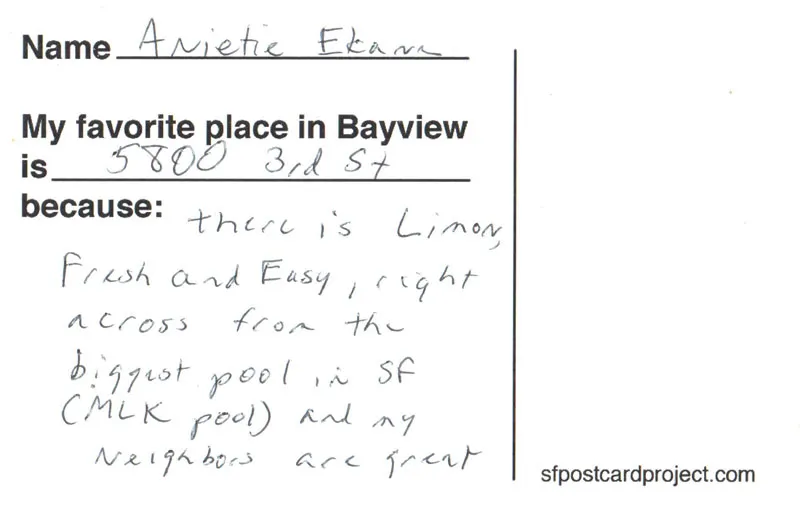 Name Anietie Ekann
My favorite place in Bayview
is 5800 3rd St
because: there is Limon,
Fresh and Easy, right
across from the
biggest pool in SF
(MLK pool) and my
Neighbors are great
sfpostcardproject.com